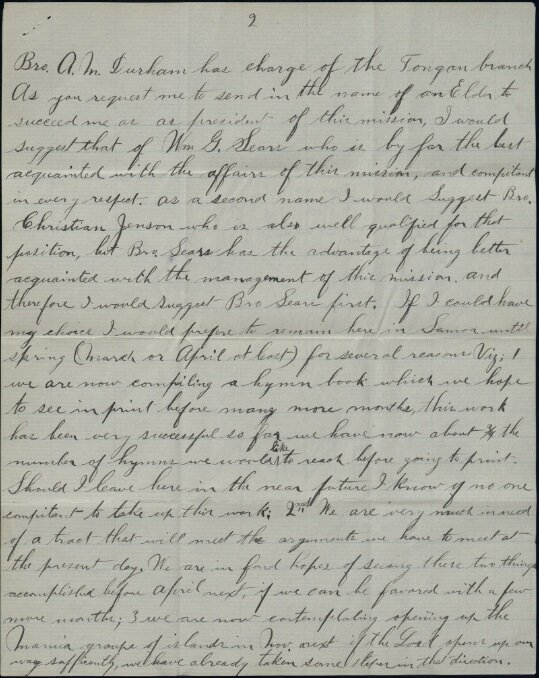 2
Bro. A. M. Durham has charge of the Tongan branch
As you request me to send in the name of an Elder to
succeed me as as president of this mission, I would
suggest that of Wm G. Sears who is by far the best
acquainted with the affairs of this mission, and compitant
in every respect. as a second name I would Suggest Bro.
Christian Jenson who is also well qualified for that
position, but Bro. Sears has the advantage of being better
acquainted with the management of this mission. and
therefore I would suggest Bro Sears first. If I could have
my choice I would prefere to remain here in Samoa until
spring (March or April at least) for several reasons Viz; 1
we are now compiling a hymn book which we hope
to see in print before many more months, this work
has been very successful so far we have now about the
number of hymns we would like to reach before going to print.
Should I leave here in the near future I know if no one
compitant to take up this work; 2nd We are very much in need
of a tract that will meet the arguments we have to meet at
the present day. We are in fond hopes of seeing these two things
accomplished before April next, if we can be favored with a few
more months; 3 we are now contemplating opening up the
Manua groupe of islands in Nov. next if the Lord opens up our
way sufficently, we have already taken some steps in the direction.